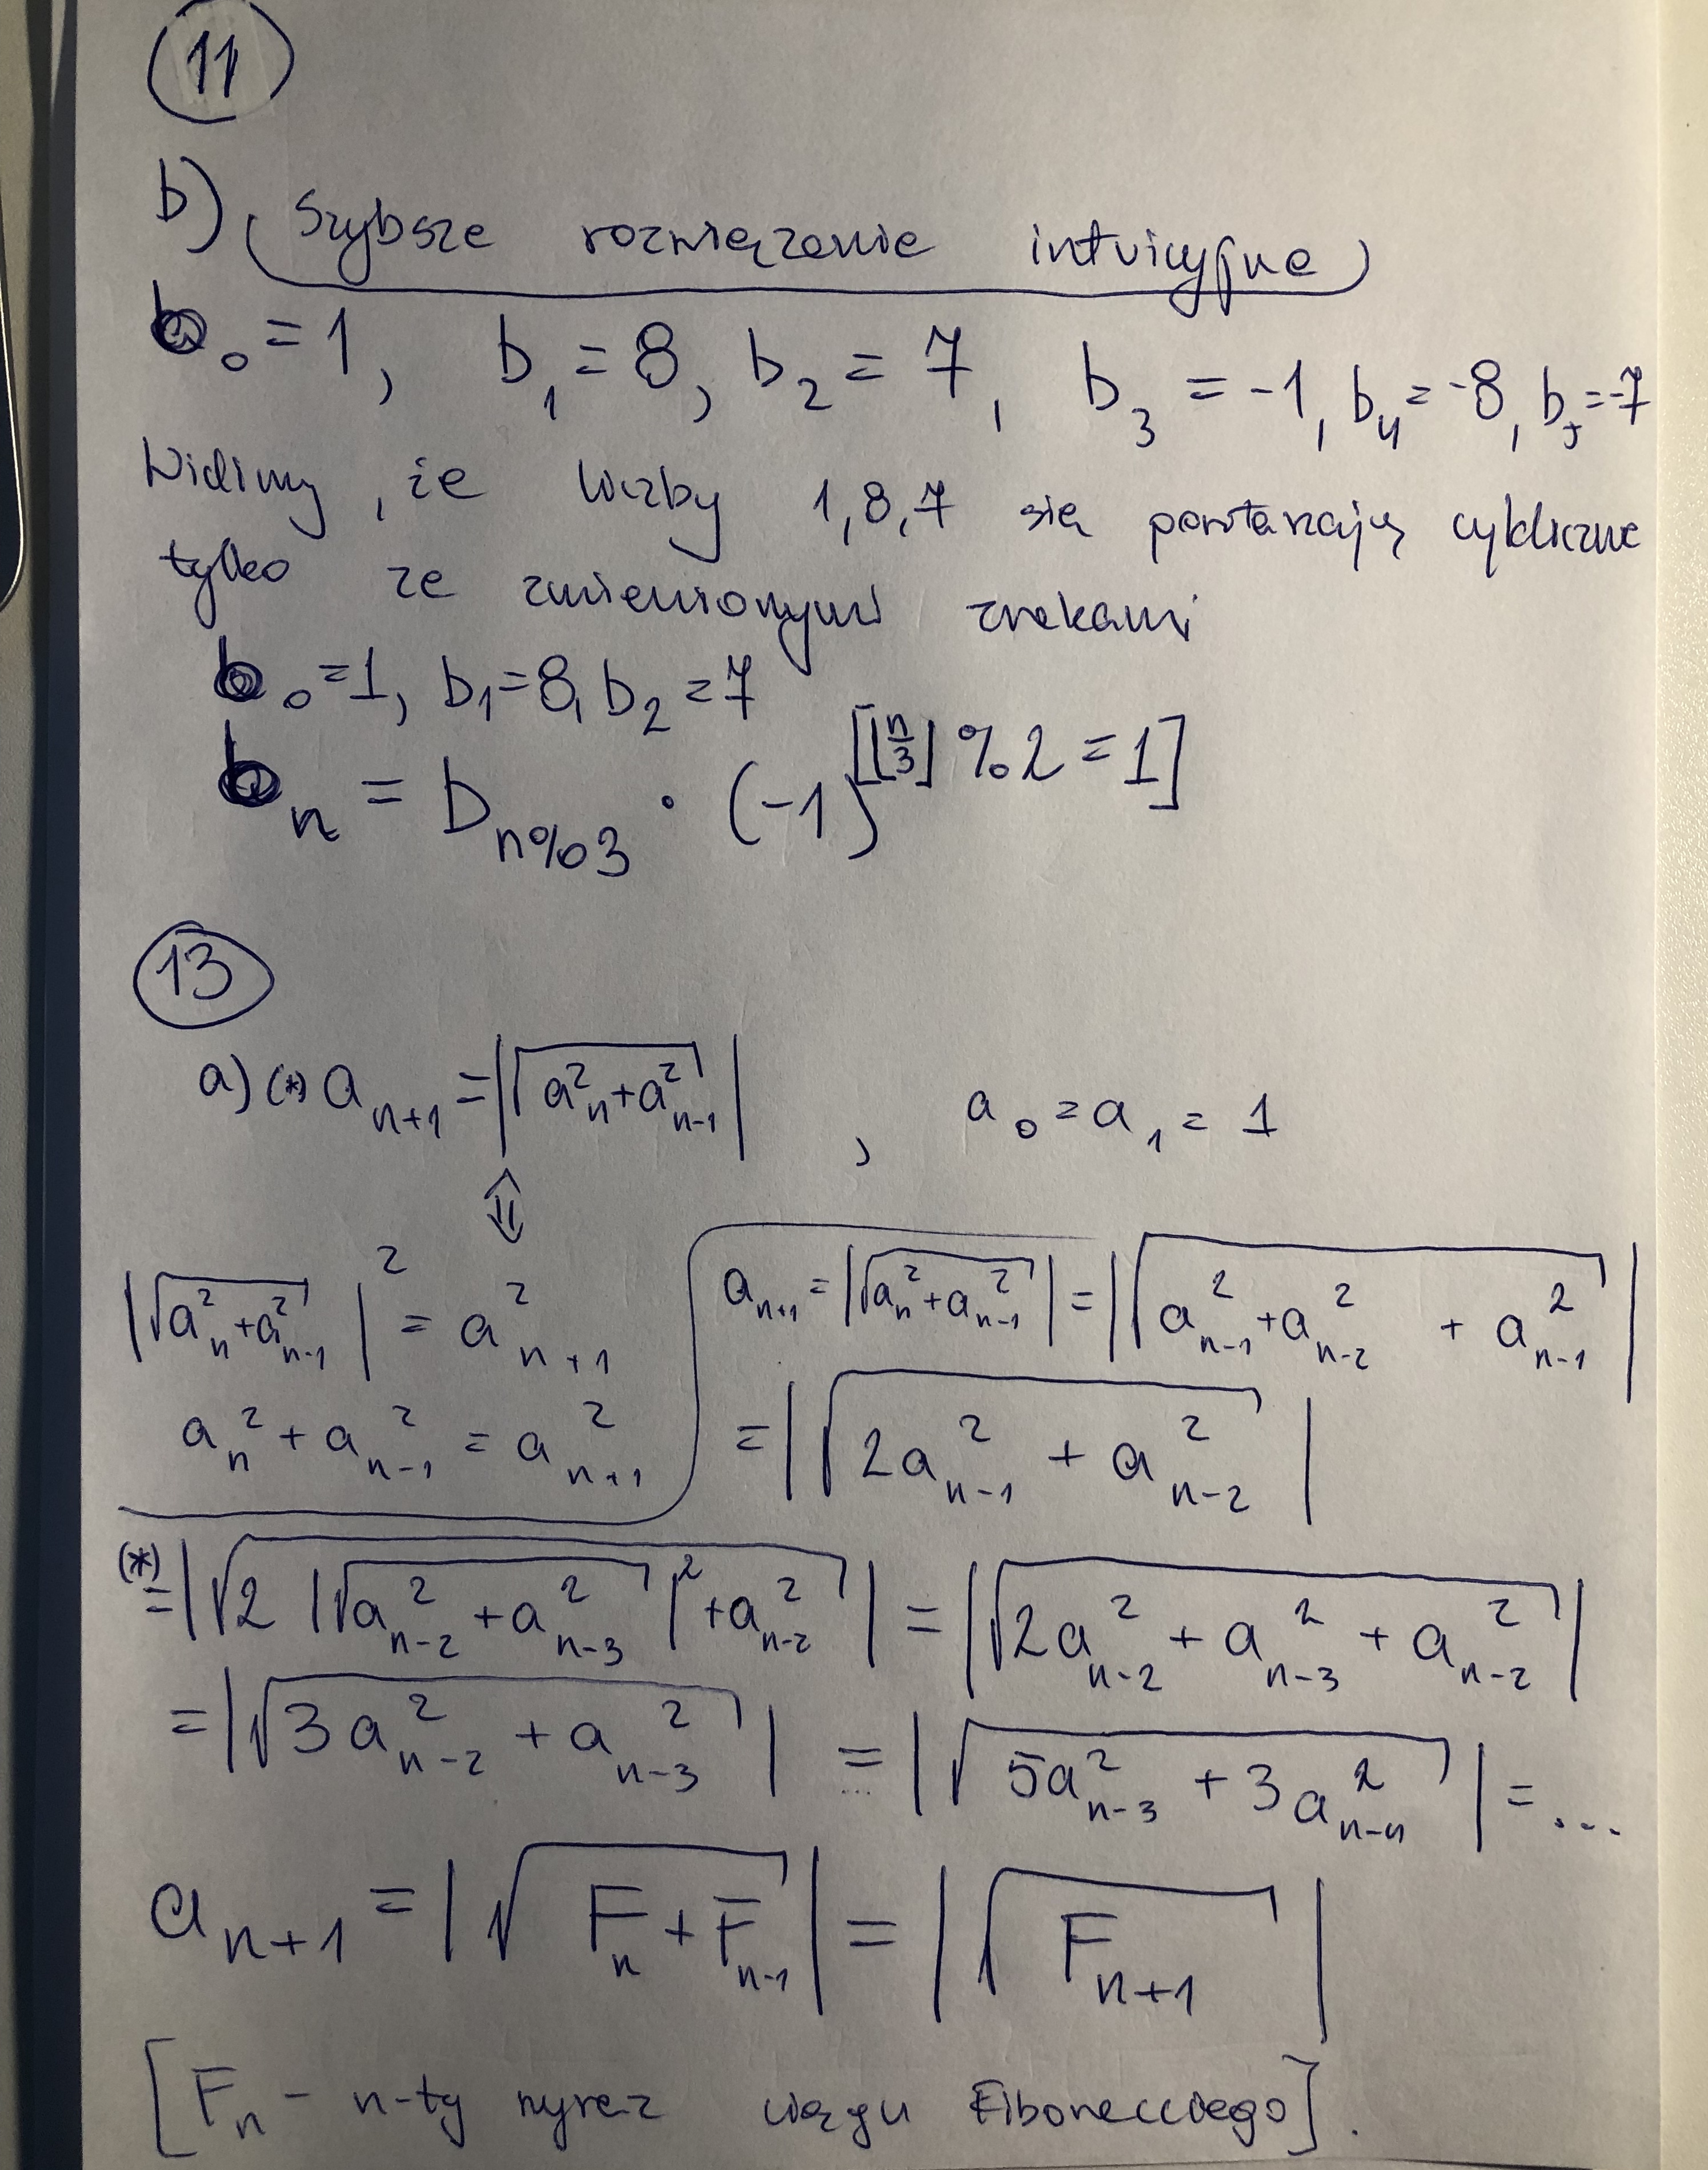 11
b) (Szybsze rozwiązanie intuicyjne)
b₀ = 1, b₁ = 8, b₂ = 7, b₃ = -1, b₄ = -8, b₅ = -7
Widzimy, że liczby 1, 8, 7 się powtarzają cyklicznie
tylko ze zmienionymi znakami
b₀ = 1, b₁ = 8, b₂ = 7
bₙ = b_{n%3} · (-1)^{[⌊n/3⌋ % 2 = 1]}
13
a) (*) a_{n+1} = |√(a_n² + a_{n-1}²)| , a₀ = a₁ = 1
⇕
|√(a_n² + a_{n-1}²)|² = a_{n+1}²
a_n² + a_{n-1}² = a_{n+1}²
a_{n+1} = |√(a_n² + a_{n-1}²)| = |√(a_{n-1}² + a_{n-2}² + a_{n-1}²)|
= |√(2a_{n-1}² + a_{n-2}²)|
(*) = |√(2|√(a_{n-2}² + a_{n-3}²)|² + a_{n-2}²)| = |√(2a_{n-2}² + a_{n-3}² + a_{n-2}²)|
= |√(3a_{n-2}² + a_{n-3}²)| = ... |√(5a_{n-3}² + 3a_{n-4}²)| = ...
a_{n+1} = |√(F_n + F_{n-1})| = |√(F_{n+1})|
[F_n - n-ty wyraz ciągu Fibonacciego].